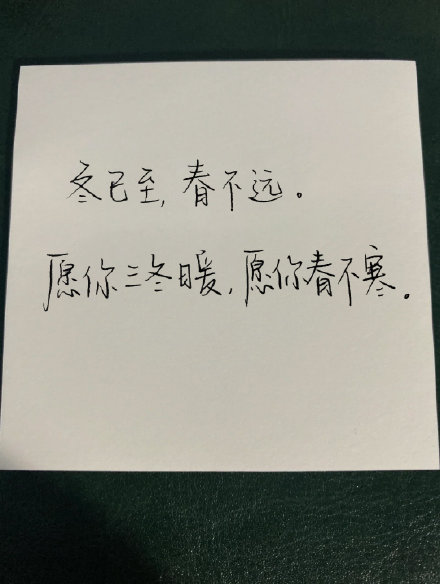 冬已至,春不远。
愿你三冬暖,愿你春不寒。